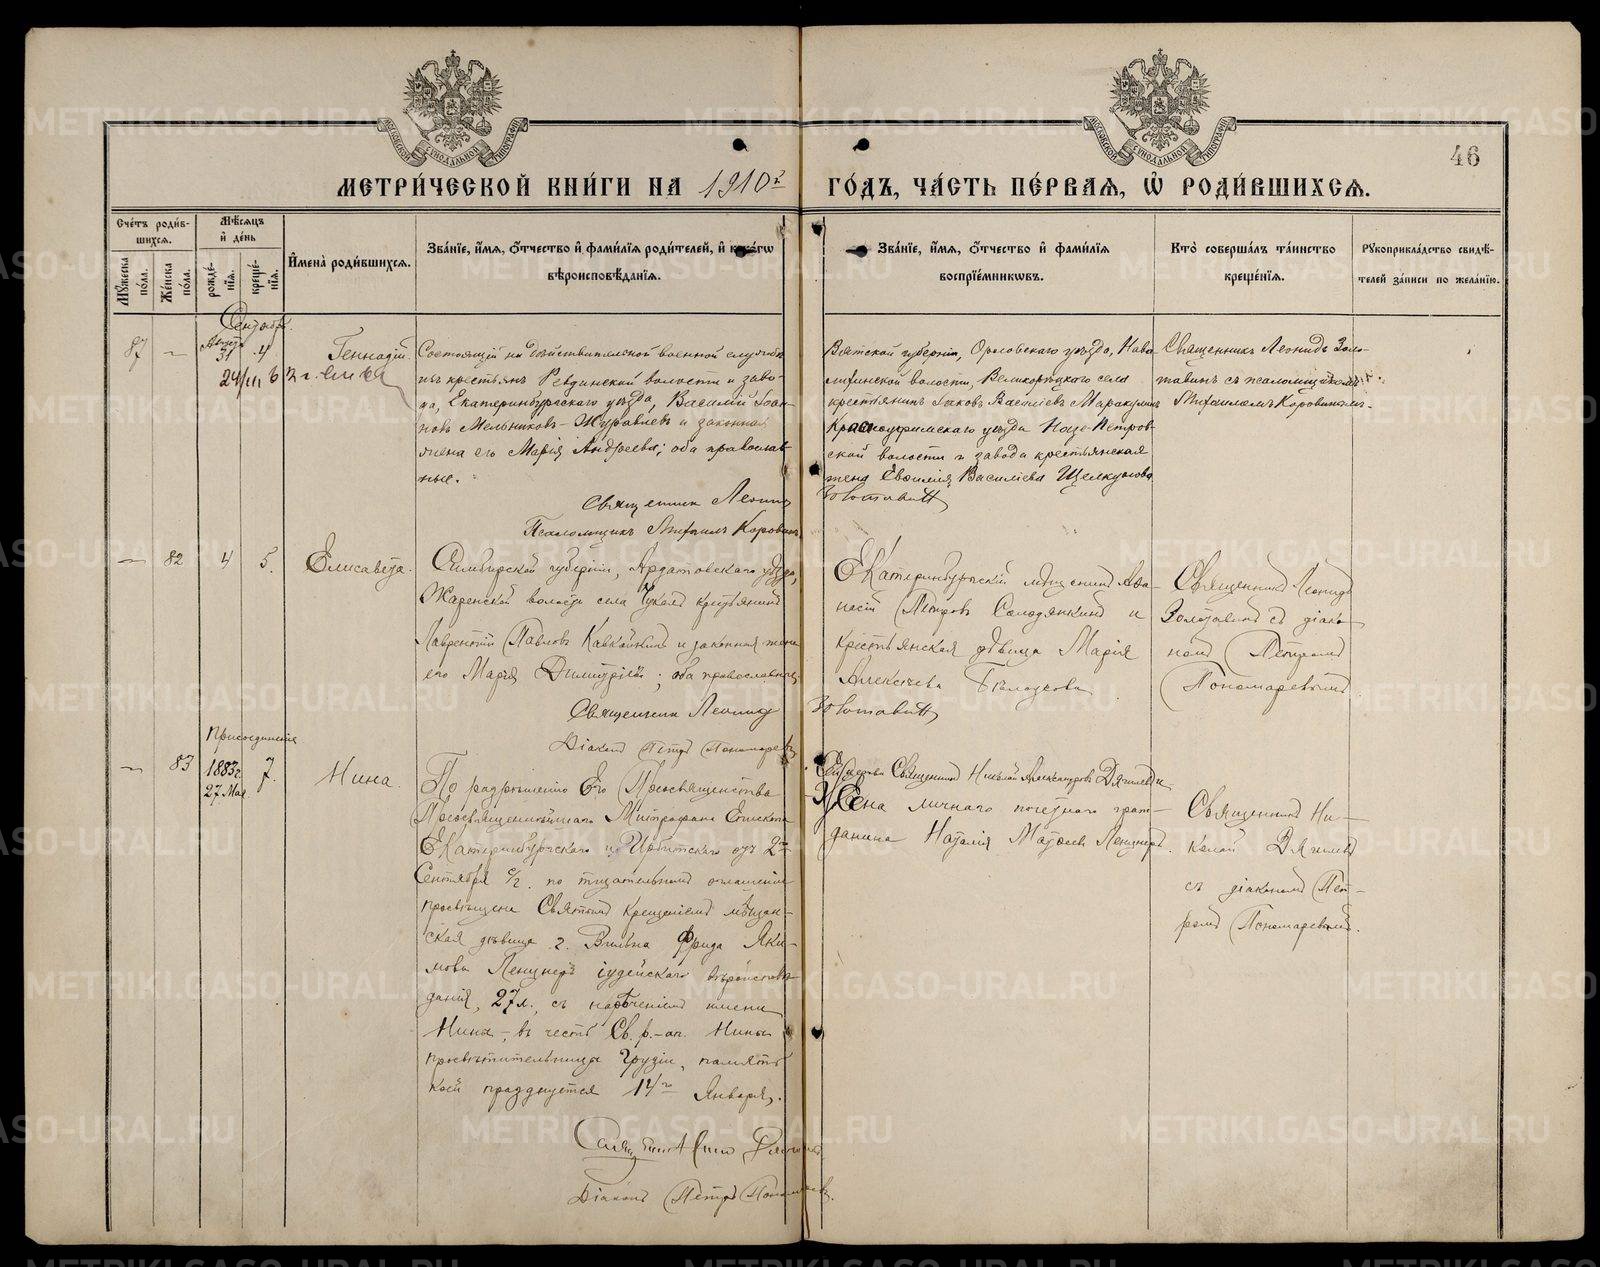 46
МЕТРИ́ЧЕСКОЙ КНИ́ГИ НА 1910 г ГО́ДЪ, ЧА́СТЬ ПЕ́РВАЯ, Ѡ҆ РОДИ́ВШИХСЯ.
Сче́тъ роди́в-
шихся.
Мꙋжеска по́ла.
Же́нска по́ла.
Мѣ́сяцъ
и҆ де́нь
рожде́-
нїя.
креще́-
нїя.
И҆мена̀ роди́вшихся.
Зва́нїе, и҆́мя, о҆́тчество и҆ фами́лїя роди́телей, и҆ како́гѡ
вѣроисповѣ́данїя.
Зва́нїе, и҆́мя, о҆́тчество и҆ фами́лїя
воспрїе́мникѡвъ.
Кто̀ соверша́лъ та́инство
креще́нїя.
Рꙋкоприкла́дство свидѣ́-
телей за́писи по жела́нїю.
Сентябрь.
87
Августа
31
4
24/III 6
Геннадій.
Состоящій на дѣйствительной военной службѣ
изъ крестьянъ Ревдинской волости и заво-
да, Екатеринбургскаго уѣзда, Василій Іоан-
новъ Мельниковъ-Журавлевъ и законная
жена его Марія Андреева; оба православ-
ные.
Священник Леонид
Псаломщикъ Михаилъ Коровинъ
Вятской губерніи, Орловскаго уѣзда,
волости, Великорѣцкаго села
крестьянинъ Іаковъ Васильевъ Маракулинъ
Красноуфимскаго уѣзда Нязе-Петров-
ской волости и завода крестьянская
жена Евфимія Васильева Щелкунова
Золотавин
Священникъ Леонидъ Золо-
тавинъ съ псаломщикомъ
Михаиломъ Коровинымъ.
82
4
5.
Елисавета.
Симбирской губерніи, Ардатовскаго уѣзда,
волости села крестьянинъ
Лаврентій Павловъ и законная жена
его Марія Димитріева; оба православные.
Священник Леонид
Золотавин
Діаконъ Петръ Пономаревъ
Екатеринбургскій мѣщанинъ Аѳа-
насій Петровъ Солодянкинъ и
крестьянская дѣвица Марія
Алексѣева
Священникъ Леонидъ
Золотавинъ съ діако-
номъ Петромъ
Пономаревымъ.
Присоединеніе
83
1883 г.
27 Мая.
7.
Нина.
По разрѣшенію Его Преосвященства
Преосвященнѣйшаго Митрофана Епископа
Екатеринбургскаго и Ирбитскаго отъ 2го
Сентября с/г. по тщательномъ оглашеніи
просвѣщена Святымъ Крещеніемъ мѣщан-
ская дѣвица г. Вильна Фрида Яки-
мова Ленцнеръ іудейскаго вѣроисповѣ-
данія, 27 л., съ нареченіемъ имени
Нина, въ честь Св. р.-ап. Нины
просвѣтительницы Грузіи, память
коей празднуется 14го Января.
Діаконъ Петръ Пономаревъ.
Священникъ Николай Александровъ Дягилевъ и
Жена личнаго почетнаго граж-
данина Наталія Матѳеева Ленцнеръ.
Священникъ Ни-
колай Дягилевъ
съ діакономъ Пет-
ромъ Пономаревымъ.